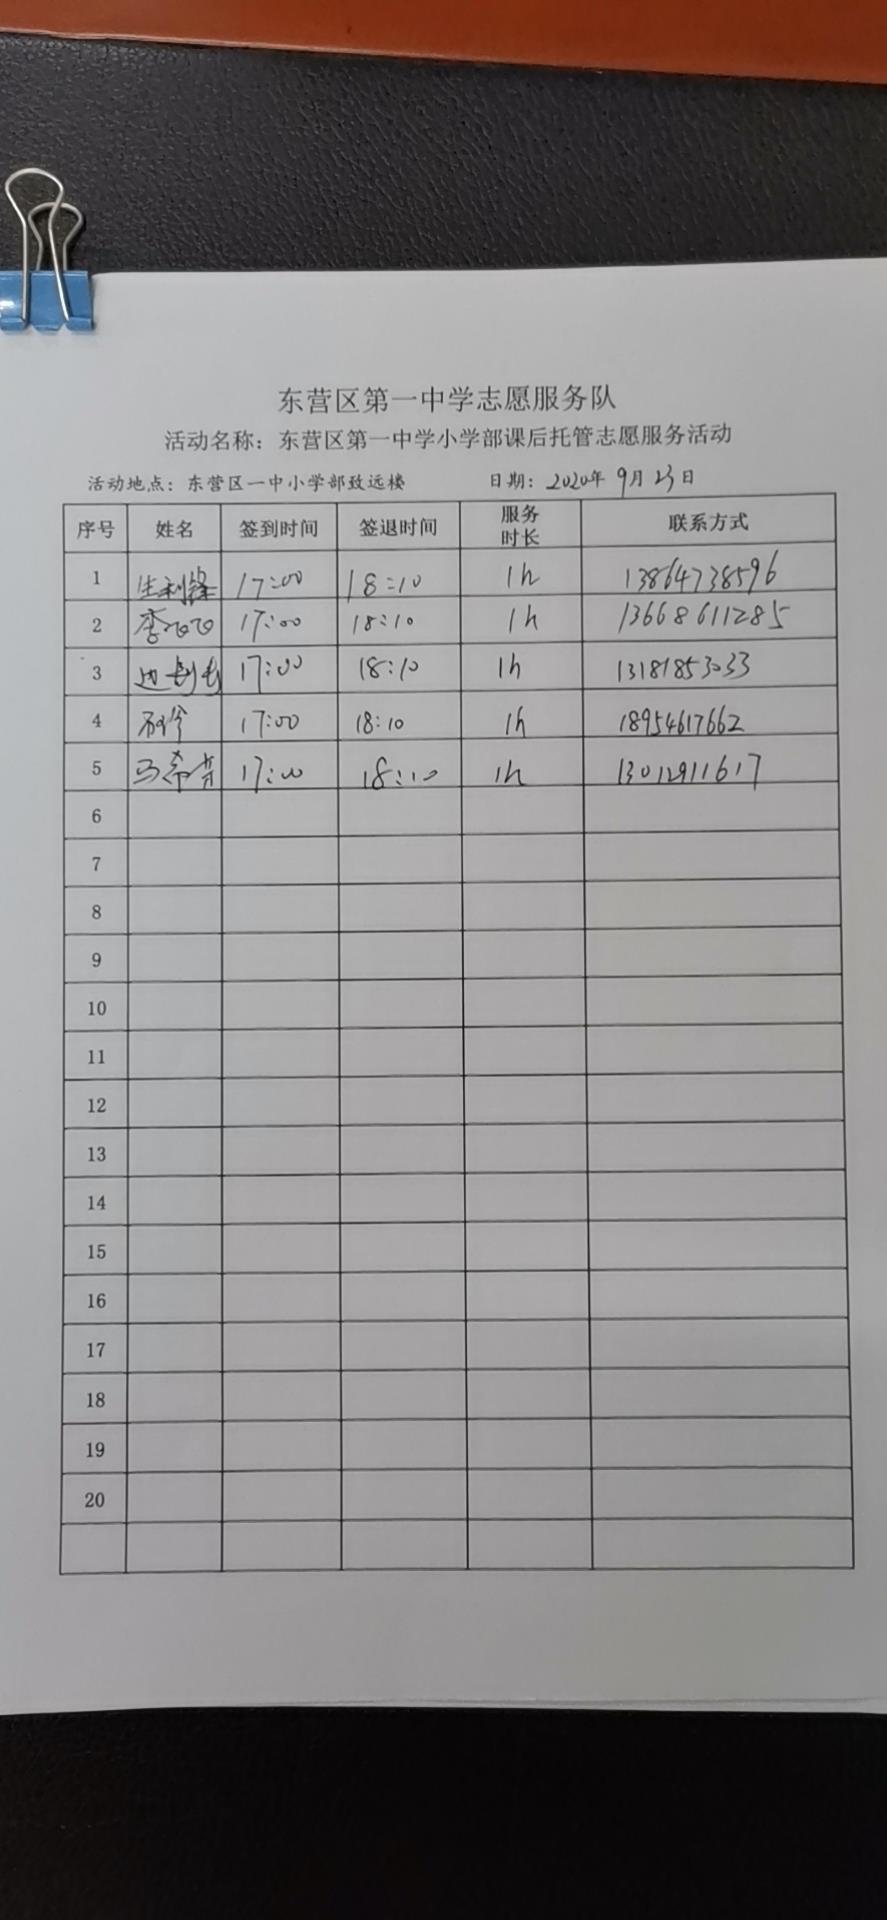 东营区第一中学志愿服务队
活动名称：东营区第一中学小学部课后托管志愿服务活动
活动地点：东营区一中小学部致远楼 日期：2020年 9月 23日
序号 姓名 签到时间 签退时间 服务时长 联系方式
1 生利锋 17:00 18:10 1h 13864738596
2 李飞飞 17:00 18:10 1h 13668611285
3 边 17:00 18:10 1h 13181853033
4 17:00 18:10 1h 18954617662
5 马希芳 17:00 18:10 1h 13012911617
6
7
8
9
10
11
12
13
14
15
16
17
18
19
20